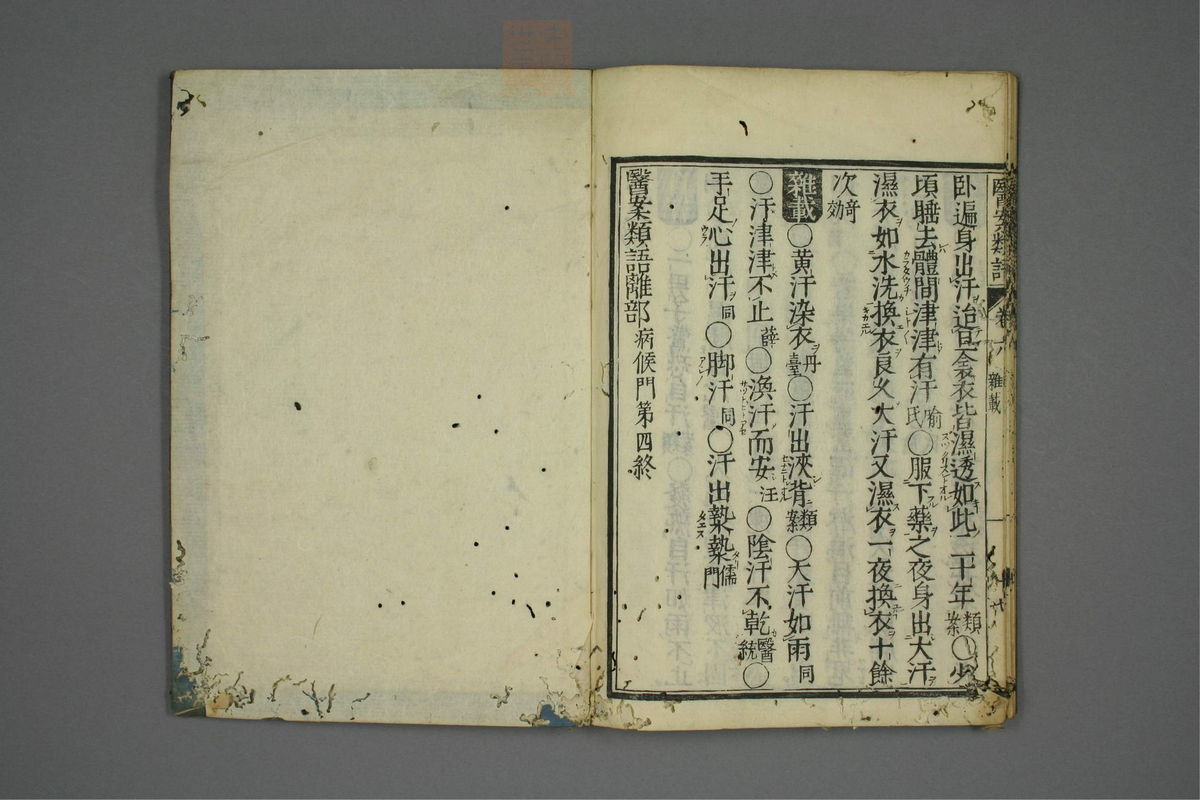 醫案類語 卷六 雜載
臥遍身出汗迨旦衾衣皆濕透如此二十年類案〇少
頃睡去體間津津有汗喻氏〇服下藥之夜身出大汗
濕衣如水洗換衣良久大汗又濕衣一夜換衣十餘
次奇効
雜載〇黃汗染衣丹臺〇汗出浹背類案〇大汗如雨同
〇汗津津不止薛〇渙汗而安汪〇陰汗不乾醫統〇
手足心出汗同〇脚汗同〇汗出漐漐儒門
醫案類語離部病候門第四終